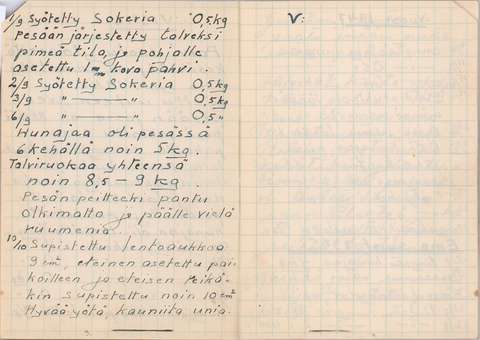 1/9 Syötetty Sokeria 0,5kg
Pesään järjestetty talveksi
pimeä tila, ja pohjalle
asetettu 1mm kova pahvi.
2/9 Syötetty Sokeria 0,5kg
3/9 " ——— " 0,5kg
6/9 " ——— " 0,5 "
Hunajaa oli pesässä
6 kehällä noin 5 kg.
Talviruokaa yhteensä
noin 8,5 – 9 kg.
Pesän peitteeki pantu
olkimatto ja päälle vielä
ruumenia.
10/10 Supistettu lentoaukkoa
9 cm² eteinen asetettu pai-
koilleen ja eteisen reikä-
kin supistettu noin 10 cm²
Hyvää yötä, kauniita unia.
V: